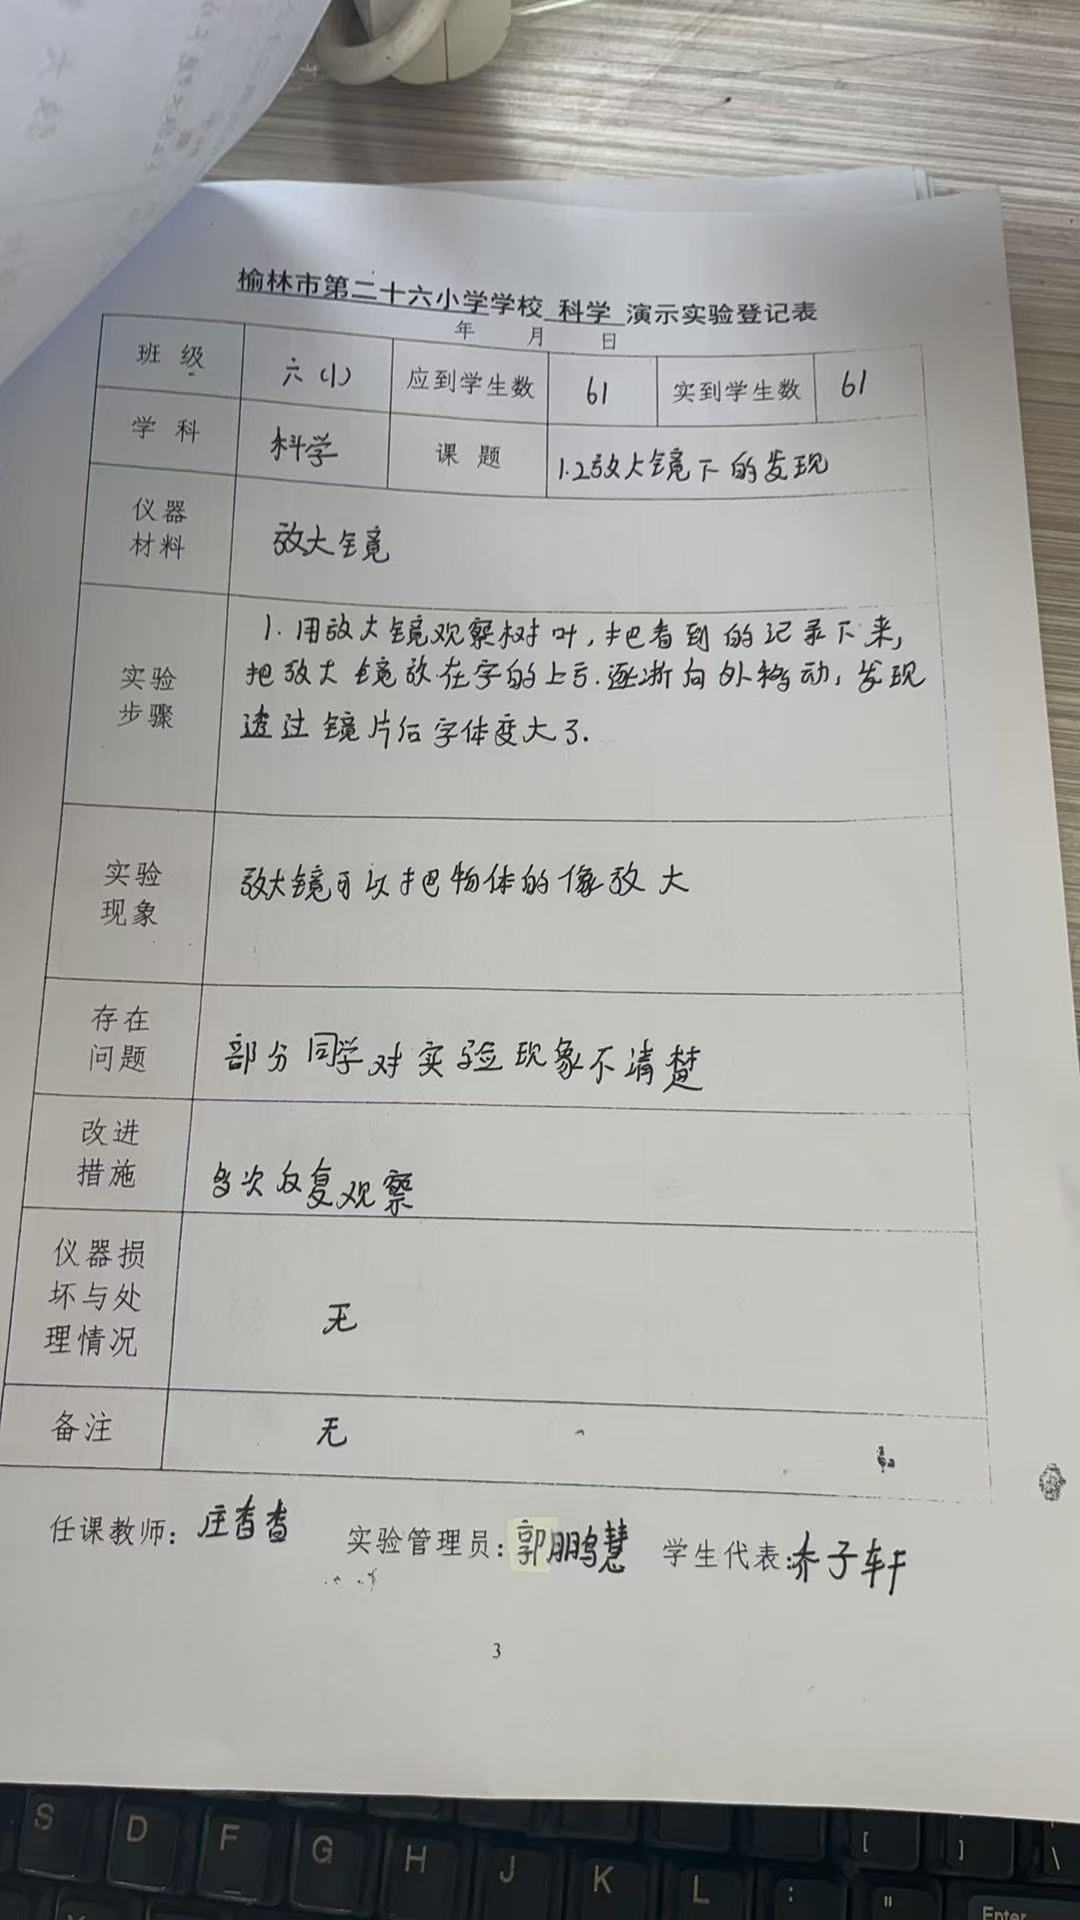 榆林市第二十六小学学校 科学 演示实验登记表
年 月 日
班 级 六(1) 应到学生数 61 实到学生数 61
学 科 科学 课 题 1.2放大镜下的发现
仪器
材料
放大镜
实验
步骤
1.用放大镜观察树叶,把看到的记录下来,
把放大镜放在字的上方.逐渐向外移动,发现
透过镜片后字体变大了.
实验
现象
放大镜可以把物体的像放大
存在
问题
部分同学对实验现象不清楚
改进
措施
多次反复观察
仪器损
坏与处
理情况
无
备注 无
任课教师: 庄香香 实验管理员: 郭鹏慧 学生代表: 乔子轩
3
S D F G H J K L : " [ ] \ Enter